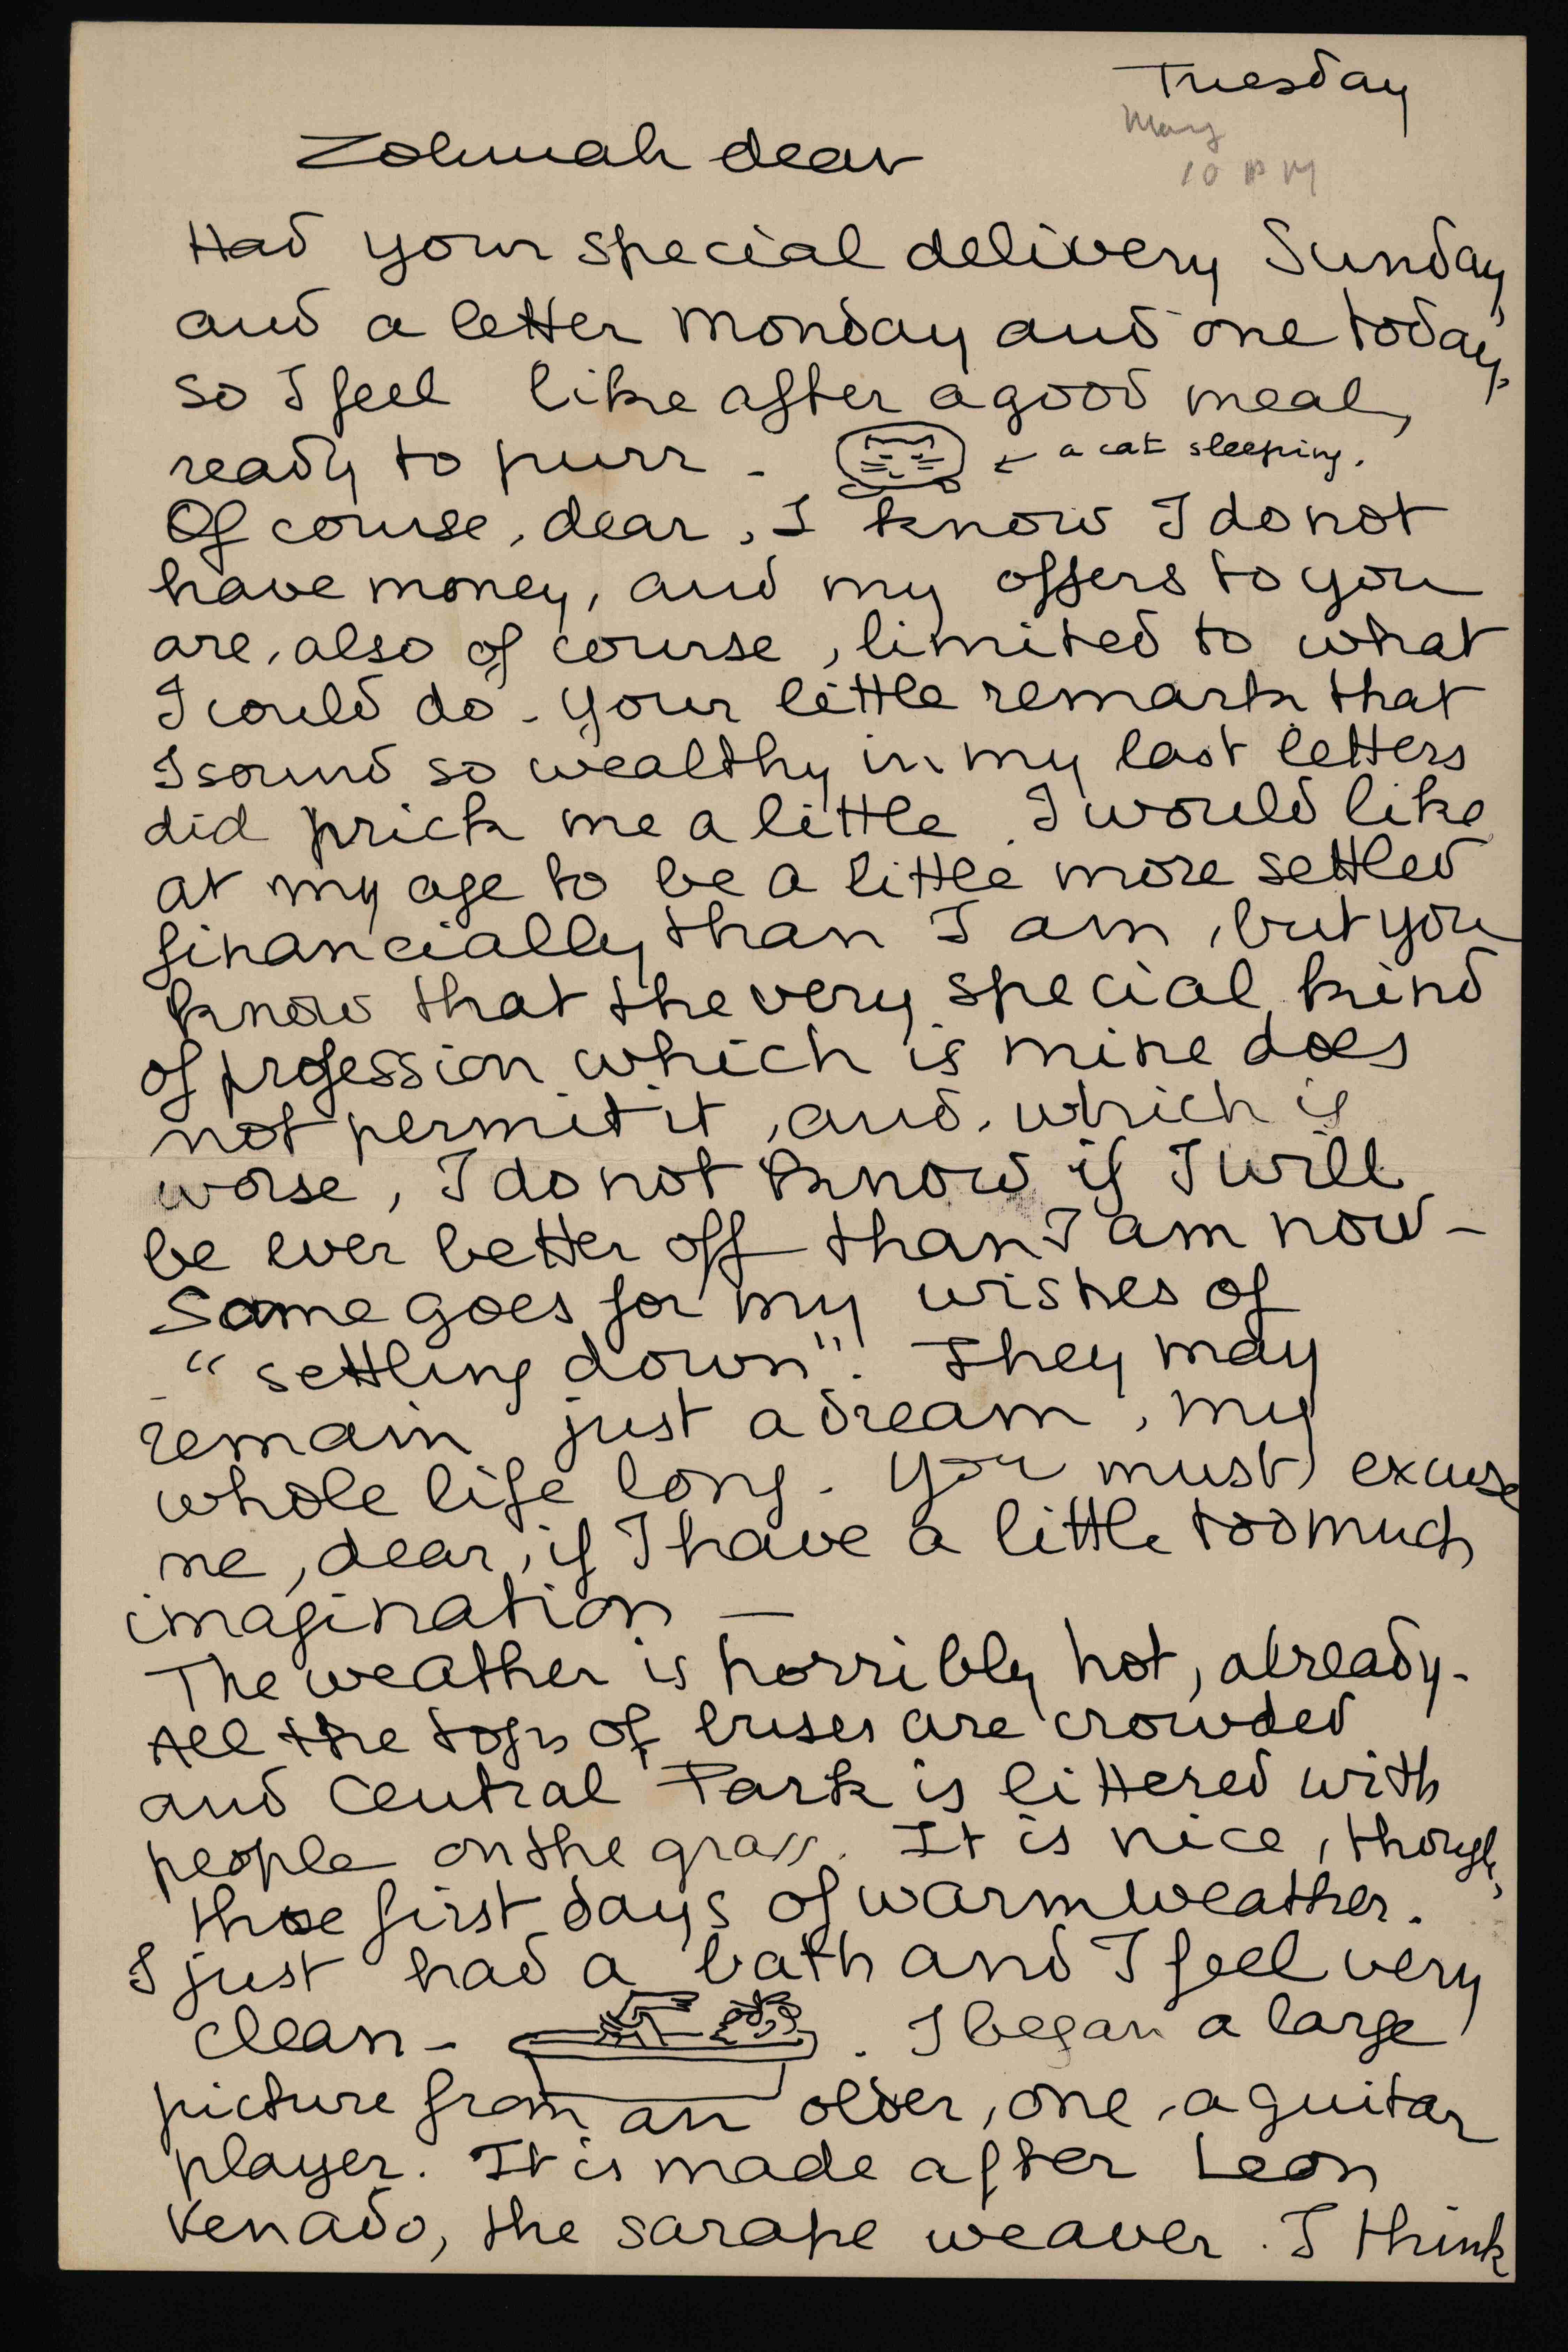 Tuesday
May
10 PM
Zohmah dear
Had your special delivery Sunday
and a letter Monday and one today,
so I feel like after a good meal,
ready to purr - ← a cat sleeping.
Of course, dear, I know I do not
have money, and my offers to you
are, also of course, limited to what
I could do - your little remark that
I sound so wealthy in my last letters
did prick me a little. I would like
at my age to be a little more settled
financially than I am, but you
know that the very special kind
of profession which is mine does
not permit it, and, which is
worse, I do not know if I will
be ever better off than I am now -
Same goes for my wishes of
"settling down". They may
remain just a dream, my
whole life long - you must excuse
me, dear, if I have a little too much
imagination —
The weather is horribly hot, already -
All the tops of buses are crowded
and Central Park is littered with
people on the grass. It is nice, though,
those first days of warm weather.
I just had a bath and I feel very
clean - . I began a large
picture from an older, one, a guitar
player. It is made after Leon
Venado, the sarape weaver. I think